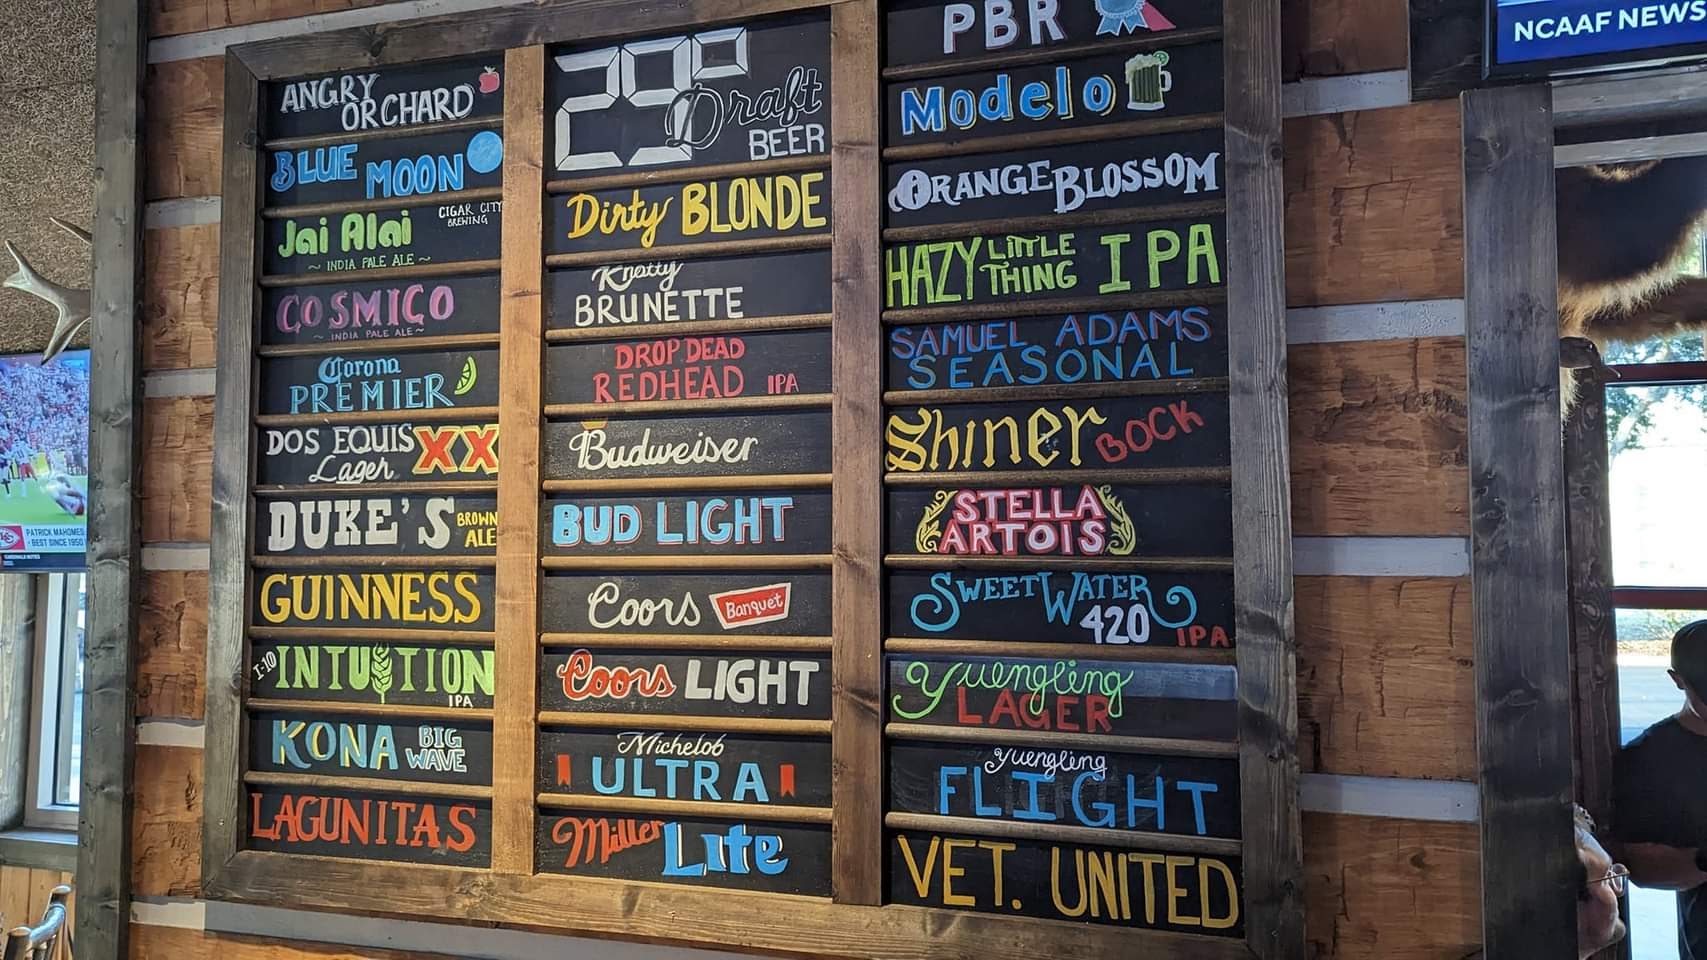 ANGRY
ORCHARD
BLUE MOON
Jai Alai CIGAR CITY
BREWING
~ INDIA PALE ALE ~
COSMICO
~ INDIA PALE ALE ~
Corona
PREMIER
DOS EQUIS XX
Lager
DUKE'S BROWN
ALE
GUINNESS
I-10 INTUITION
IPA
KONA BIG
WAVE
LAGUNITAS
29°
Draft
BEER
Dirty BLONDE
Knotty
BRUNETTE
DROP DEAD
REDHEAD IPA
Budweiser
BUD LIGHT
Coors Banquet
Coors LIGHT
Michelob
ULTRA
Miller Lite
PBR
Modelo
ORANGE BLOSSOM
HAZY LITTLE
THING IPA
SAMUEL ADAMS
SEASONAL
Shiner BOCK
STELLA
ARTOIS
SWEETWATER
420 IPA
Yuengling
LAGER
Yuengling
FLIGHT
VET. UNITED
NCAAF NEWS
PATRICK MAHOMES
BEST SINCE 1950